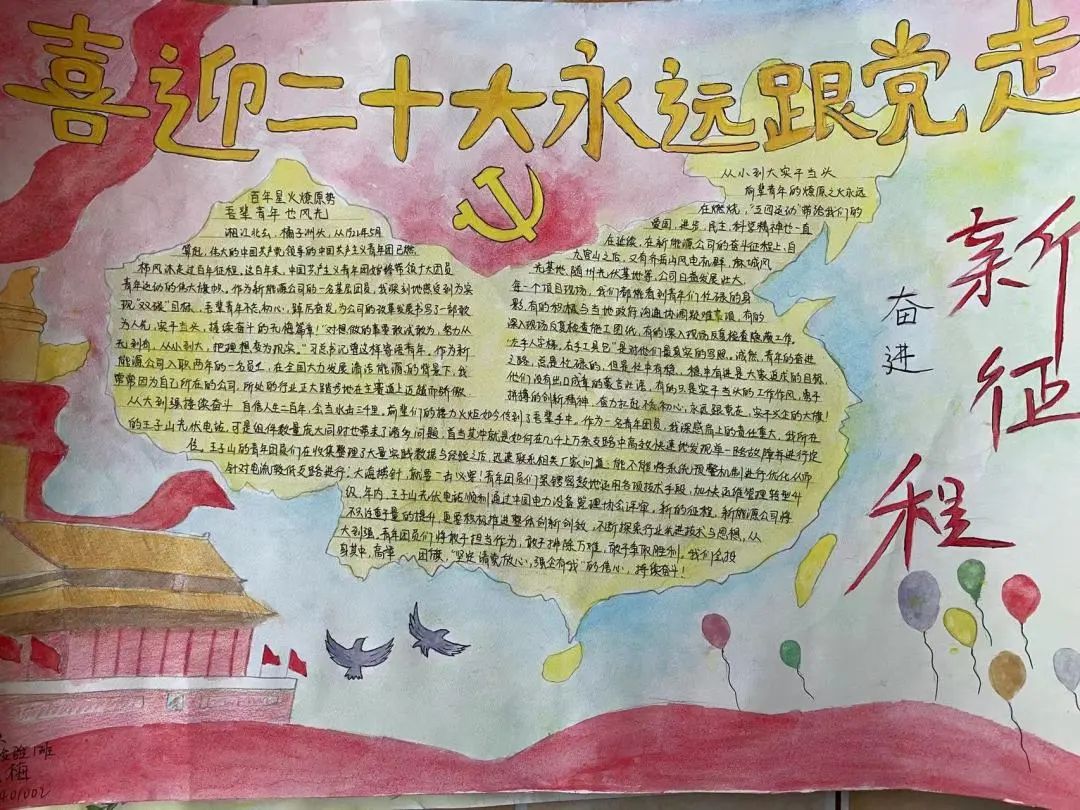 喜迎二十大永远跟党走
百年星火燎原势
吾辈青年也风光
湘江北去，橘子洲头，从1922年5月
算起，伟大的中国共产党领导的中国共产主义青年团已然
栉风沐走过百年征程，这百年来，中国共产主义青年团始终带领广大团员
青年运动的伟大旗帜，作为新能源公司的一名基层团员，我深刻地感受到为实
现“双碳”目标，吾辈青年不忘初心，踔厉奋发，为公司的改革发展书写了一部敢
为人先，实干当头，接续奋斗的无悔篇章！“对想做的事要敢试敢为，努力从
无到有，从小到大，把理想变为现实。”习总书记曾这样寄语青年。作为新
能源公司入职两年的一名员工，在全国大力发展清洁能源的背景下，我
常常因为自己所在的公司，所处的行业正大踏步地在主渠道上迈越而骄傲
从小到大实干当头
前辈青年的燎原之火永远
在燃烧，“五四运动”带给我们的
爱国，进步，民主，科学精神也一直
在延续，在新能源公司的奋斗征程上，自
九宫山之后，又有齐岳山风电机群，麻城风
光基地，随州光伏基地等，公司日益发展壮大
每一个项目现场，我们都能看到青年们忙碌的身
影，有的积极与当地政府沟通协调疑难事项，有的
深入现场反复检查施工图纸，有的深入现场反复检查隐蔽工作，
“左手人字梯，右手工具包”是对他们最真实的写照，诚然，青年的奋进
之路，总是忙碌的，但是忙中有稳，稳中有进是大家追求的目标
他们没有出口成章的豪言壮语，有的只是实干当头的工作作风，勇于
拼搏的创新精神，奋力扛起不忘初心，永远跟党走，实干兴企的大旗！
从大到强接续奋斗 自信人生二百年，会当水击三千里，前辈们的接力火炬如今传到了吾辈手中，作为一名青年团员，我深感肩上的责任重大，我所在
的王子山光伏电站，可是组件数量庞大同时也带来了诸多问题，首当其冲就是如何在几千上万条支路中高效快速地发现单一路故障并进行定
位。王子山的青年团员们在收集整理了大量实践数据与经验之后，迅速联系相关厂家问喜：能不能将系统预警机制进行优化从而
针对电流较低支路进行“大海捞针”，就要一击必穿！青年团员们呆锈窍敦地运用各项技术手段，加快运维管理转型升
级，年内，王子山光伏电站顺利通过中国电力设备管理协会评审，新的征程，新能源公司将
不仅注重量的提升，更要积极推进整体创新创效，不断探索行业先进技术与思想，从
大到强，青年团员们将敢于担当作为，敢于排除万难，敢于争取胜利。我们全投
身其中，高举团旗，“坚定请党放心，强企有我”的信心，持续奋斗！
奋进
新征程
实验1班
梅